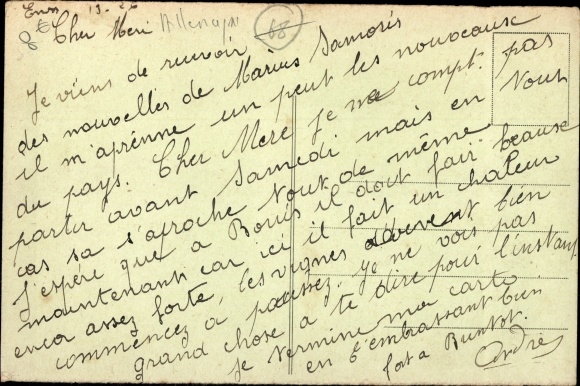 Cher Meri Allemagne 68
Je viens de recevoir
des nouvelles de Marius Samedis
il m'aprénne un peut les nouveaux
du pays. Cher Mere je ne compt. pas
partir avant Samedi mais en tout
cas sa s'aproche tout de même
J'espère que a Borius il doit fair beause
maintenant car ici il fait un chaleur
encor assez forte, les vignes doivent bien
commencez a paussez. Je ne vois pas
grand chose a te dire pour l'instant
je termine ma carte
en t'embrassant bien
fort a Bientot.
André